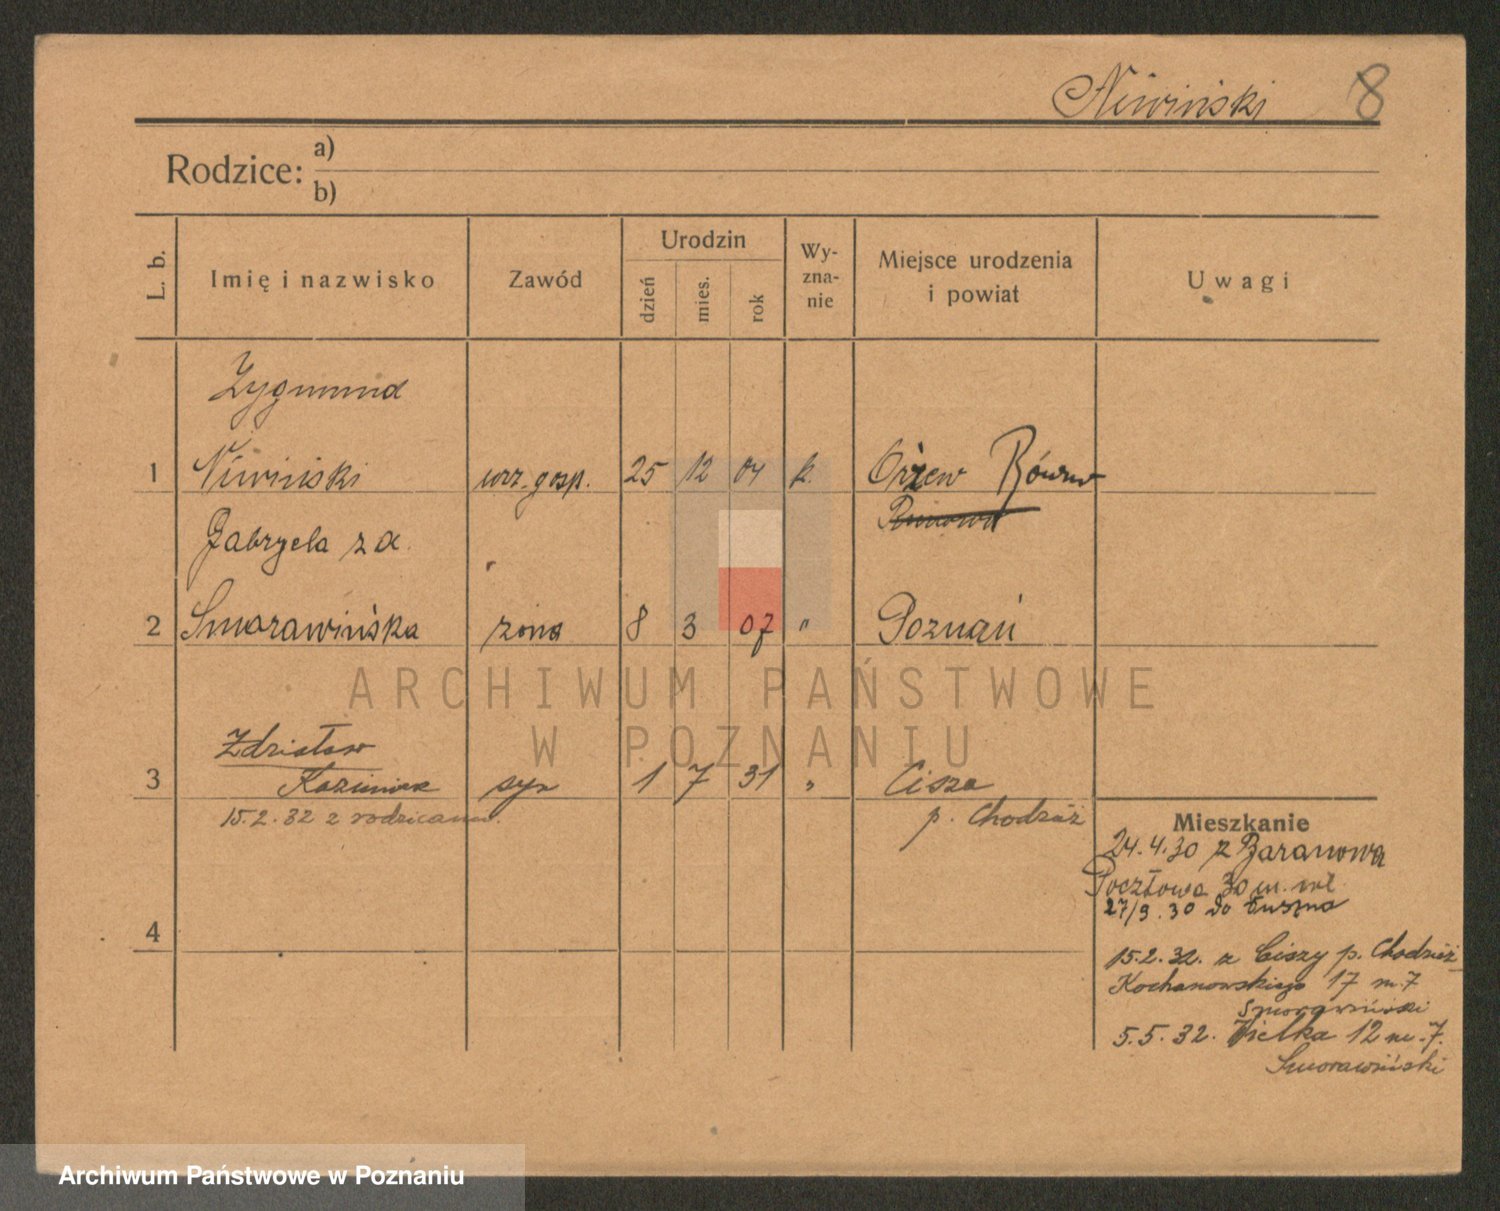 Niwiński 8
Rodzice: a)
b)
L. b. Imię i nazwisko Zawód Urodzin dzień mies. rok Wy-zna-nie Miejsce urodzenia i powiat Uwagi
Zygmund
1 Niwiński urz. gosp. 25 12 04 k. Orżew Równe
Gabryela z d.
2 Smorawińska żona 8 3 07 " Poznań
Zdzisław
3 Kazimierz syn 1 7 31 " Cisze
15.2.32 z rodzicami. p. Chodzież
Mieszkanie
24.4.30 z Baranowa
Pocztowa 30 m. wł.
27/9.30 do
4
15.2.32. z Ciszy p. Chodzież
Kochanowskiego 17 m. 7
Smorawiński
5.5.32. Wielka 12 m. 7.
Smorawiński
ARCHIWUM PAŃSTWOWE
W POZNANIU
Archiwum Państwowe w Poznaniu